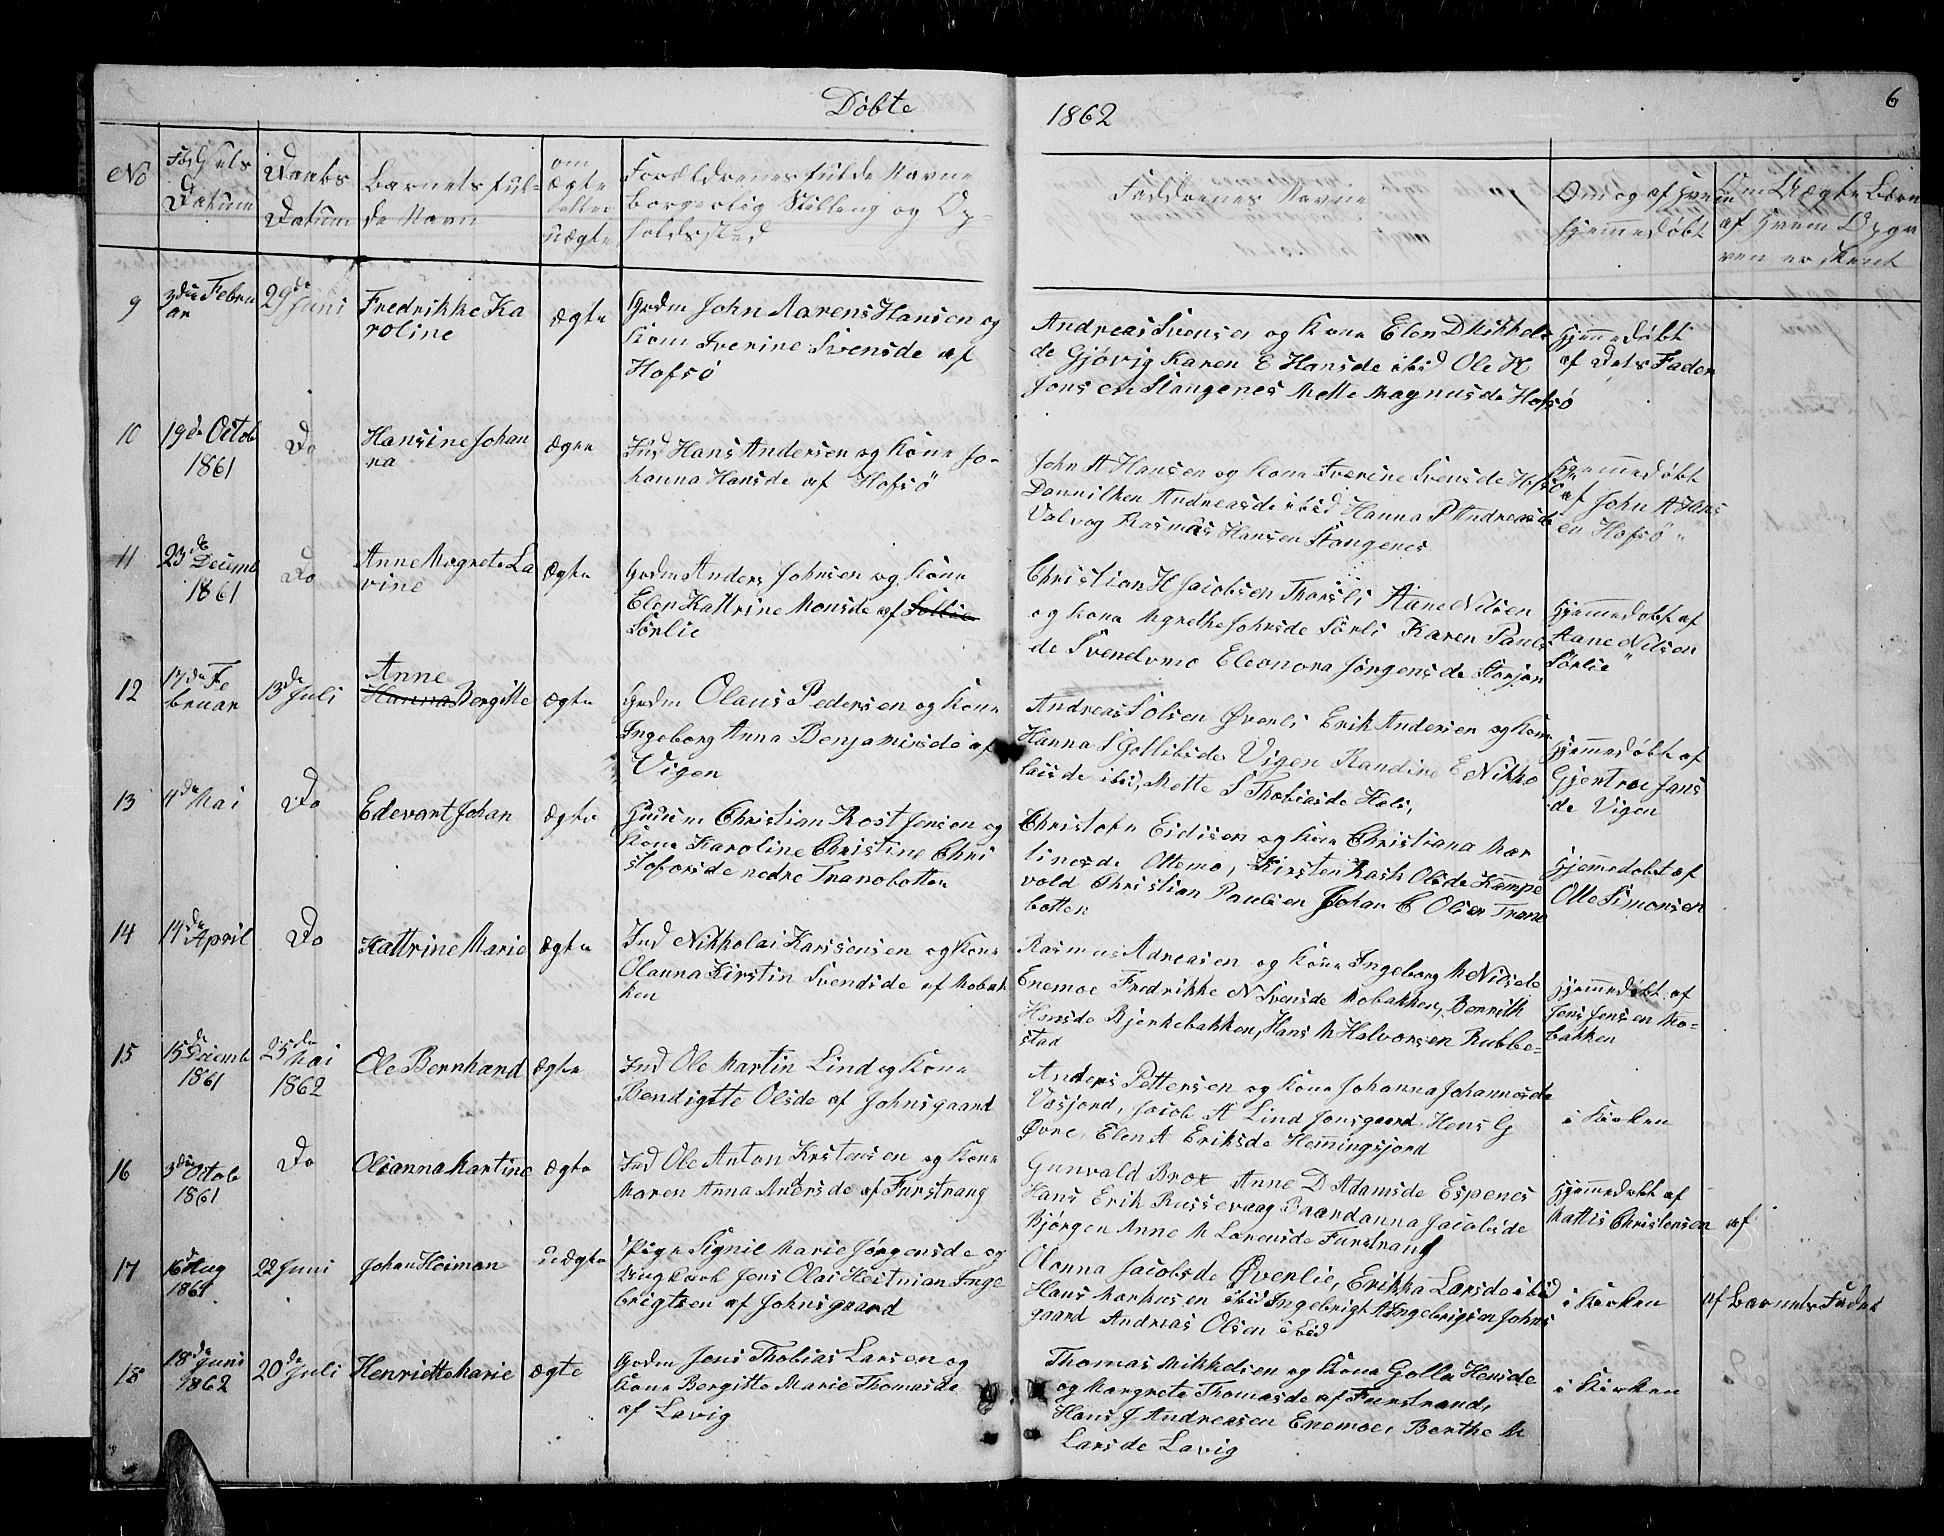 Döbte
1862
6
No
Fødsels Datum
Daabs Datum
Barnets fulde Navn
om ægte eller uægte
Forældrenes fulde Navne
Borgerlig Stilling og Opholdssted
Faddrenes Navne
Om og af hvem hjemmedøbt
Om Uægte Børn
af hvem Opgaven er skeet
9
3die Februar
29de Juni
Fredrikke Karoline
ægte
Grdm John Hansen og
Kone Iverine Svensde af
Hofsö
Andreas Svensen og Kone Elen D Mikkels
de Gjövig Karen E Hansde ibid Ole H
Jensen Stangenes Mette Magnusde Hofsö
Hjemmedøbt
af Dets Fader
10
19de Octob
1861
Do
Hansine Johanna
ægte
Ind Hans Andersen og Kone Jo-
hanna Hansde af Hofsö
John A Hansen og Kone Iverine Svensde Hofsö
Andreasde ibid Hanna P Andreasde
Valvog Rasmus Hansen Stangenes
Hjemmedøbt
af John A Hans
en Hofsö
11
23de Decemb
1861
Do
Anne Magrete Lavine
ægte
Grdm Anders Johnsen og Kone
Elen Kattrine Monsde af
Sörlie
Christian H Jacobsen Thorsli Aane Nilsen
og Kone Mgrethe Johnsde Sörli Karen Pauls
de Svendvmo Eleonora Jörgensde Storjor
Hjemmedøbt af
Aane Nilsen
Sörlie
12
17de Februar
13de Juli
Anne
Hanna Bergitte
ægte
Grdm Olaus Pedersen og Kone
Ingeborg Anna Benjaminsde af
Vigen
Andreas Solsen Øverli Erik Andersen og Kone
Hanna S Gollibsde Vigen Randine E Nikko
laisde ibid, Mette S Thobiasde
Hjemmedøbt af
Gjertroe Jans
de Vigen
13
4de Mai
Do
Edevart Johan
ægte
Christian Rost Jensen og
Kone Karoline Christine Chri
stofersde nedre Tranobotten
Christofer Eidisen og Kone Christiana Mar
tinesde Ottemo, Kirsten Rask Olsde Kampe
vold Christian Paulsen Johan C Olsen Trano
botten
Hjemmedøbt af
Otte Simonsen
14
14de April
Do
Kattrine Marie
ægte
Ind Nikkolai Karstensen og Kone
Olanna Kirstin Svendsde af Mobak
ken
Rasmus Adreasen og Kone Ingeborg M Nilsde
Enemoe Fredrikke N Svensde Mobakken, Berrith
Hansde Bjerkebakken, Hans M Halvorsen Rubbe-
stad
Hjemmedøbt af
Jens Jensen Mo-
bakken
15
15de Decemb
1861
25de Mai
1862
Ole Bernhard
ægte
Ind Ole Martin Lind og Kone
Bendigtte Olsde af Johnsgaard
Anders Pettersen og Kone Johanna Johannesde
Vasjord, Jacob A Lind Jonsgaard Hans G
Øvre, Elen A Eriksde Hemmingsjord
i Kirken
16
3die Octob
1861
Do
Olianna Martine
ægte
Ind Ole Anton Kristensen og Kone
Maren Anna Andersde af Furstrang
Gunvald Brox Anne D Adamsde Espenes
Hans Erik Russevaag Baardanna Jacobsde
Bjørgen Anne M Larensde Furstrand
Hjemmedøbt af
Mattis Christensen
af
17
16de Aug
1861
22 Juni
Johan Heiman
uægte
Pige Signil Marie Jörgensde og
Ungkarl Jens Olai Heitman Inge
brigtsen af Johnsgaard
Olanna Jacobsde Øverlie, Erikka Larsde ibid
Hans Markusen ibid Ingebrigt A Ingebrigtsen Johns
gaard Andreas Olsen ibid
i Kirken
af Barnets Fader
18
18de Juni
1862
20de Juli
Henriette Marie
ægte
Grdm Jens Thobias Larsen og
Kone Bergitte Marie Thomasde
af Lavig
Thomas Mikkelsen og Kone Golla Hansde
og Margrete Thomasde af Furstrand,
Hans J Andreasen Enemoe, Berthe M
Larsde Lavig
i Kirken